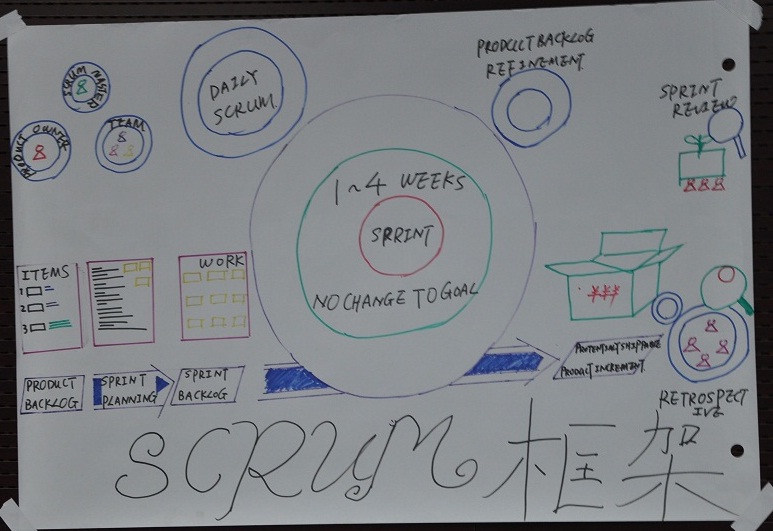 SCRUM MASTER
PRODUCT OWNER
TEAM
DAILY
SCRUM
PRODUCT BACKLOG
REFINEMENT
SPRINT
REVIEW
1~4 WEEKS
SPRINT
NO CHANGE TO GOAL
ITEMS
1
2
3
WORK
¥¥¥
PRODUCT
BACKLOG
SPRINT
PLANNING
SPRINT
BACKLOG
POTENTIALLY SHIPPABLE
PRODUCT INCREMENT
RETROSPECT
IVE
SCRUM框架